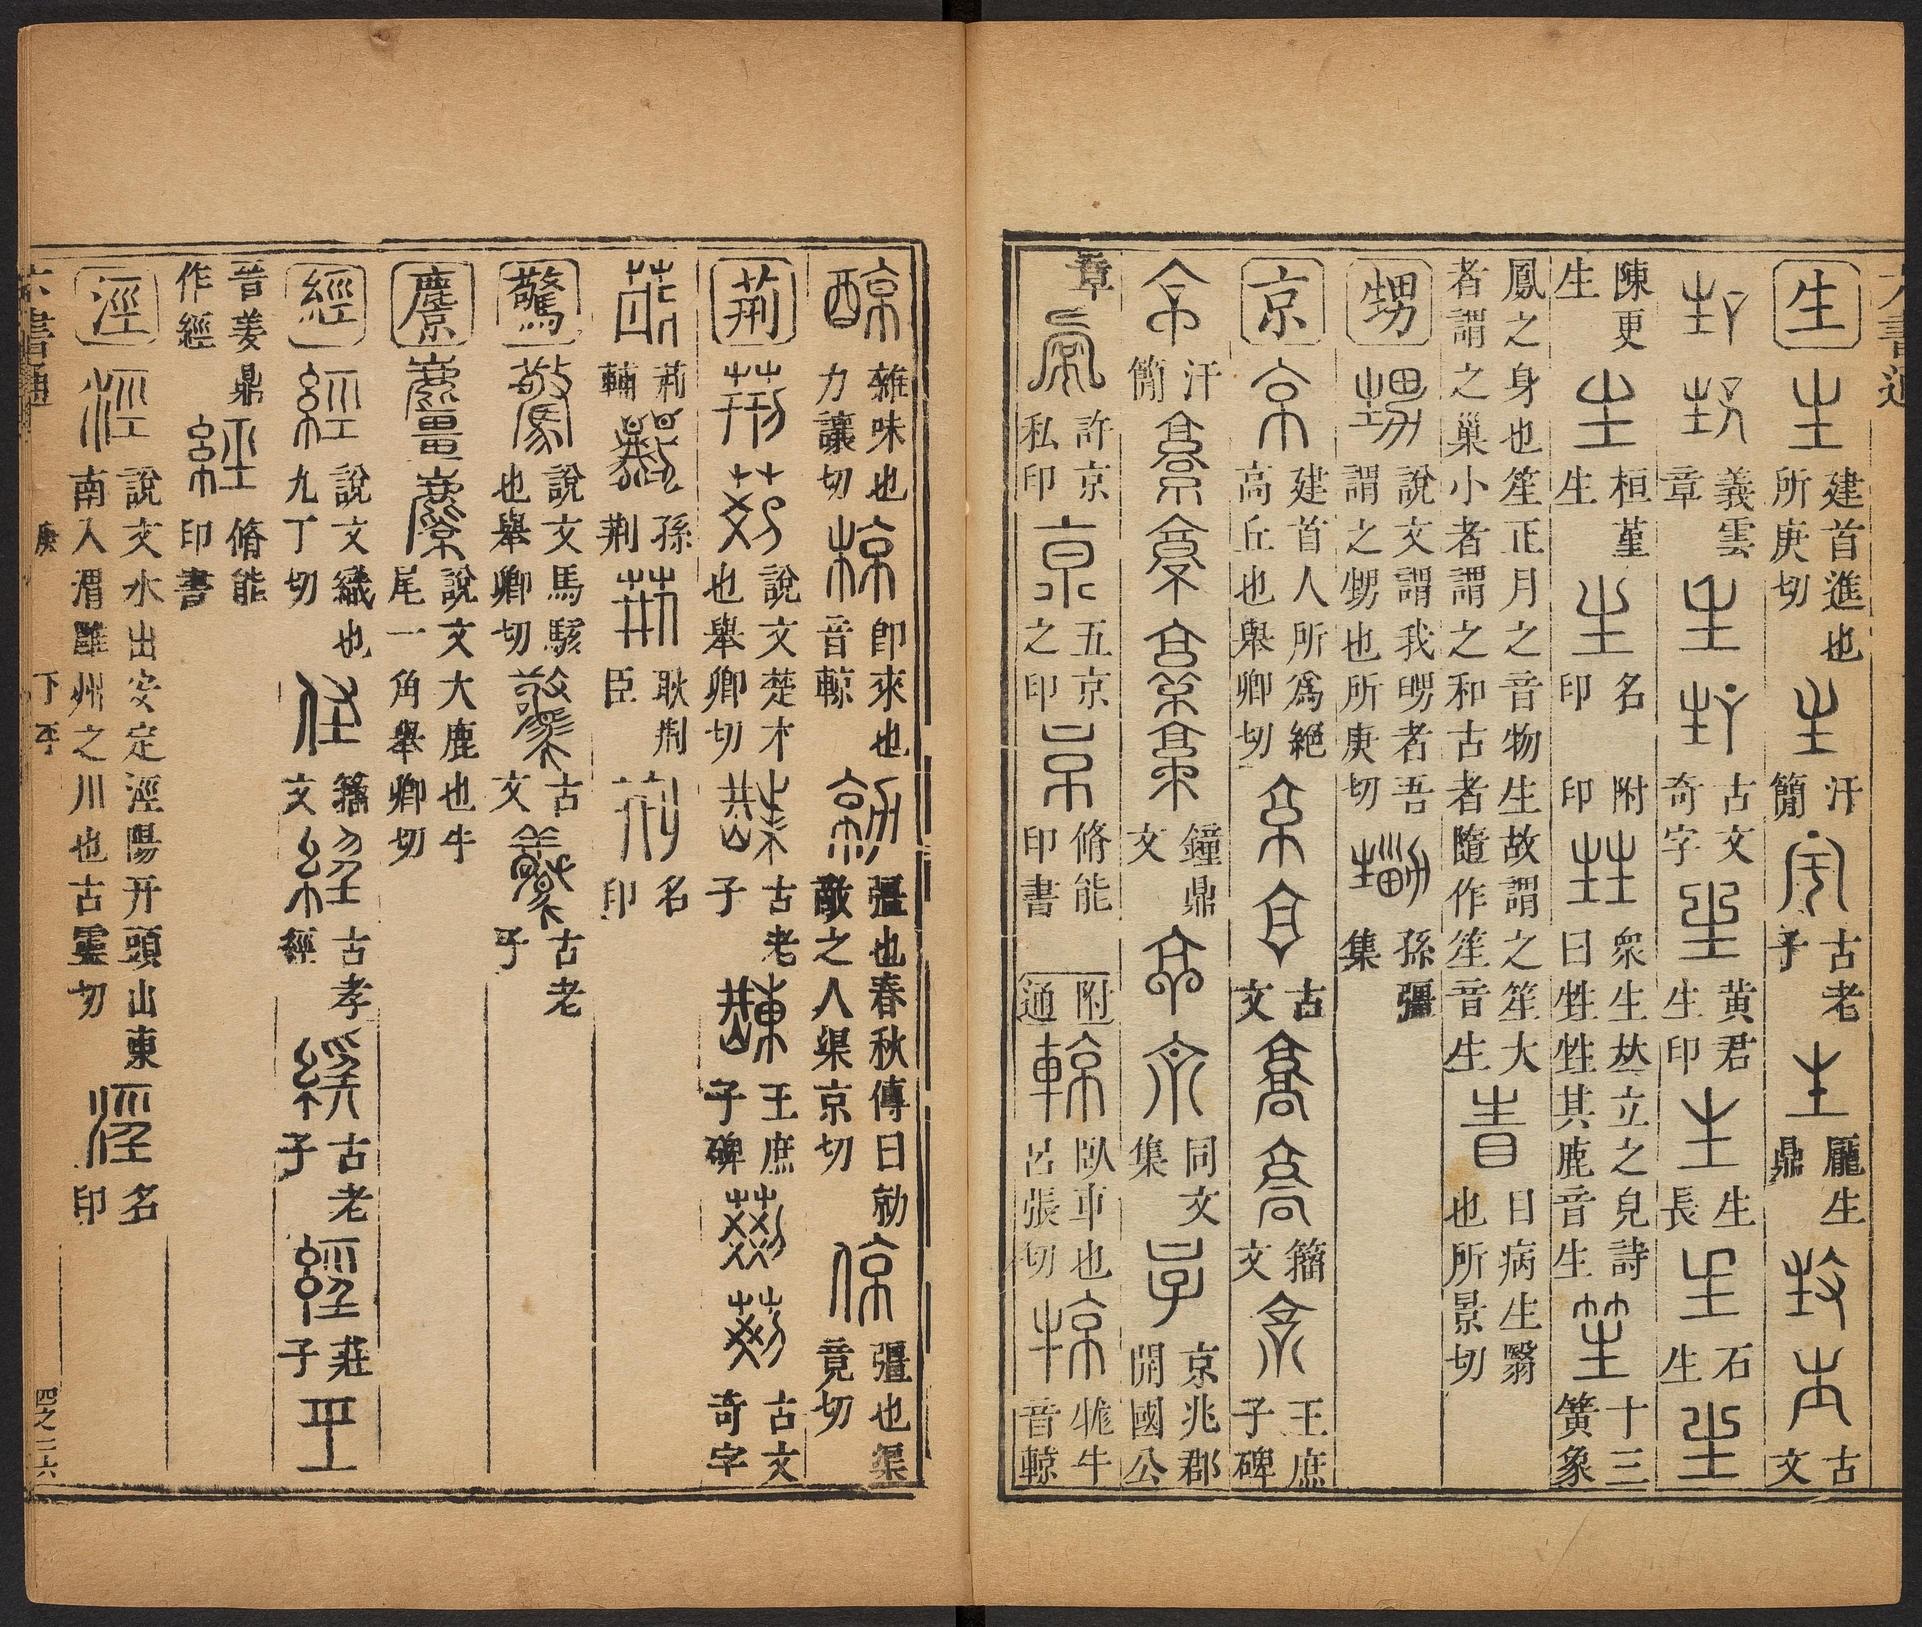 生 建首進也所庚切 汗簡 古老子 龎生鼎 古文
義雲章 古文奇字 黄君生印 生長 石生
陳更生 桓菫生 名印 附印 衆生𠀤立之皃詩曰甡甡其鹿音生 十三簧象
鳳之身也笙正月之音物生故謂之笙大者謂之巢小者謂之和古者隨作笙音生 目病生翳也所景切
甥 說文謂我甥者吾謂之甥也所庚切 孫彊集
京 建首人所爲絕高丘也舉卿切 古文 籀文 王庶子碑
汗簡 鐘鼎文 同文集 京兆郡開國公
章 許京私印 五京之印 脩能印書 附通 臥車也呂張切 牻牛音輬
雜味也力讓切 卽來也音輬 彊也春秋傳曰勍敵之人渠京切 彊也渠竟切
荊 說文楚木也舉卿切 古老子 王庶子碑 古文奇字
荊輔 孫荆 耿荆臣 名印
驚 說文馬駭也舉卿切 古文 古老子
麠 說文大鹿也牛尾一角舉卿切
經 說文織也九丁切 籀文 古孝經 古老子 莊子
晉姜鼎作經 脩能印書
涇 說文水出安定涇陽幵頭山東南入渭雝州之川也古靈切 名印
六書通 庚 下平 四之二六